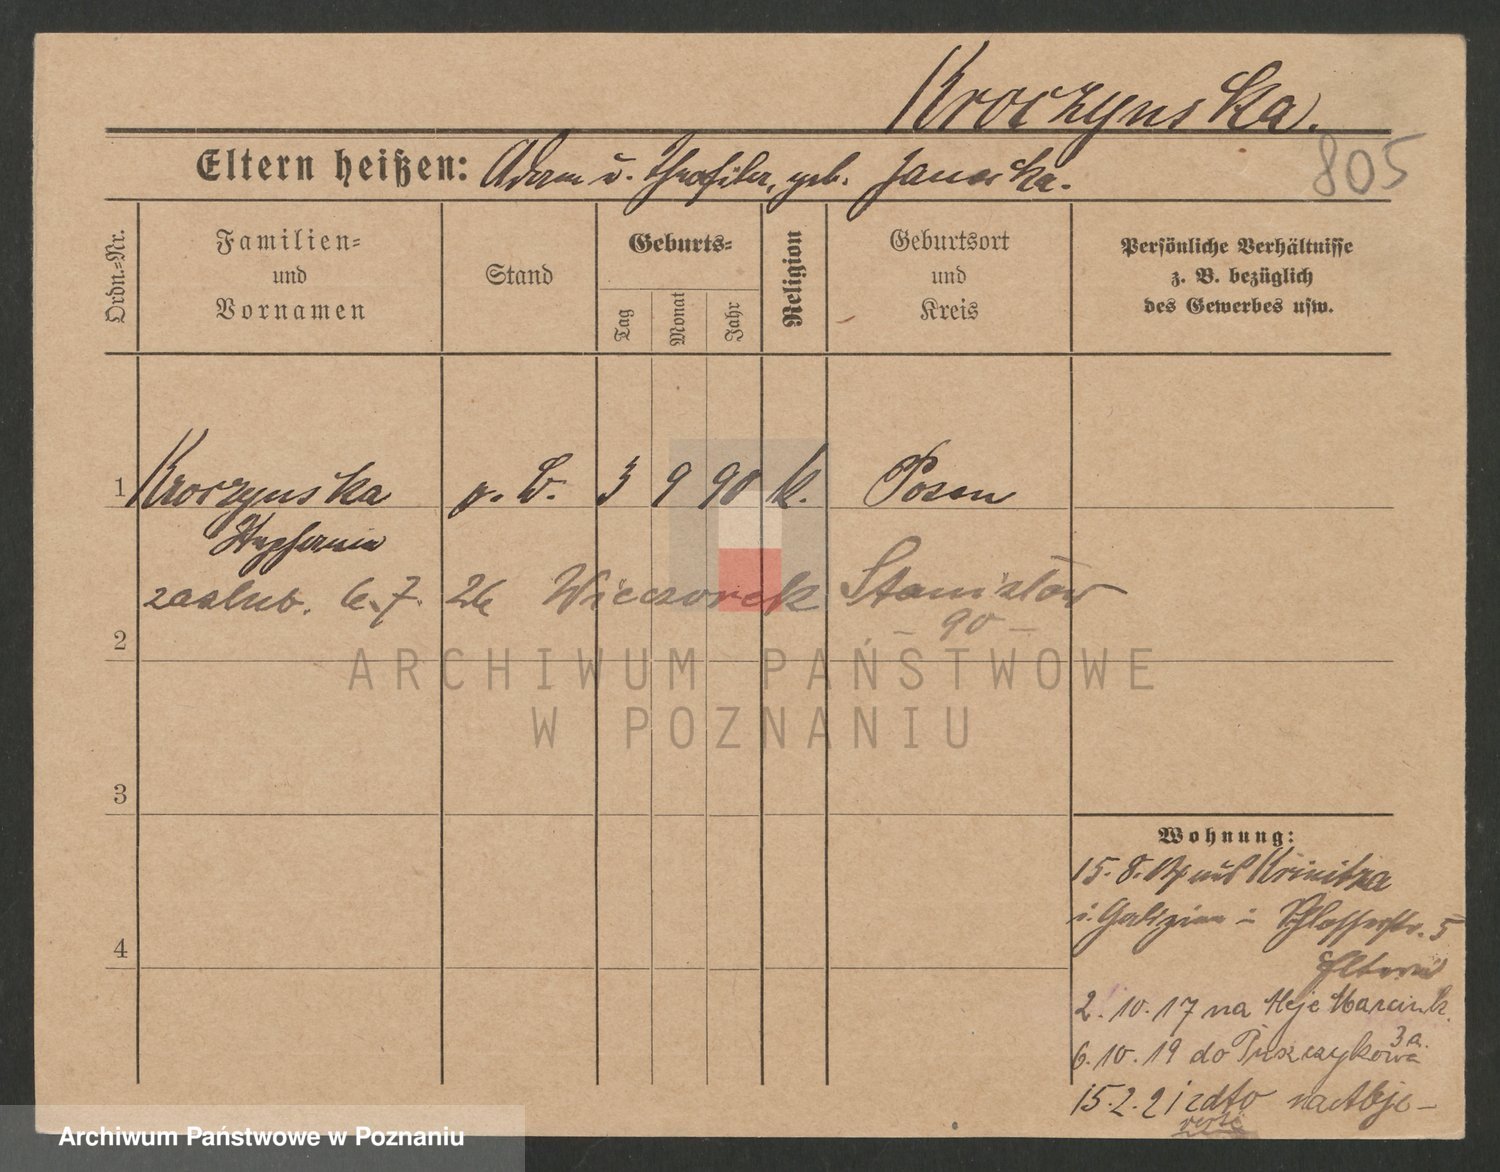 Kroczynska.
805
Eltern heißen: Adam u. Theofila, geb. Janecka.
Ordn.=Nr.
Familien=
und
Vornamen
Stand
Geburts=
Tag
Monat
Jahr
Religion
Geburtsort
und
Kreis
Persönliche Verhältnisse
z. B. bezüglich
des Gewerbes usw.
1 Kroczynska p. B. 3 9 90 k. Posen
Stephania
zaslub. 6.7. 26 Wieczorek Stanisław
– 90 –
2
ARCHIWUM PAŃSTWOWE
W POZNANIU
3
4
Wohnung:
15. 8. 14 aus Krinitza
i. Galizien – Schlosserstr. 5
Eltern
2. 10. 17 na Aleje Marcink.
3a.
6. 10. 19 do Puszczykowa
15. 2. 21 zdto na Aleje –
verte
Archiwum Państwowe w Poznaniu